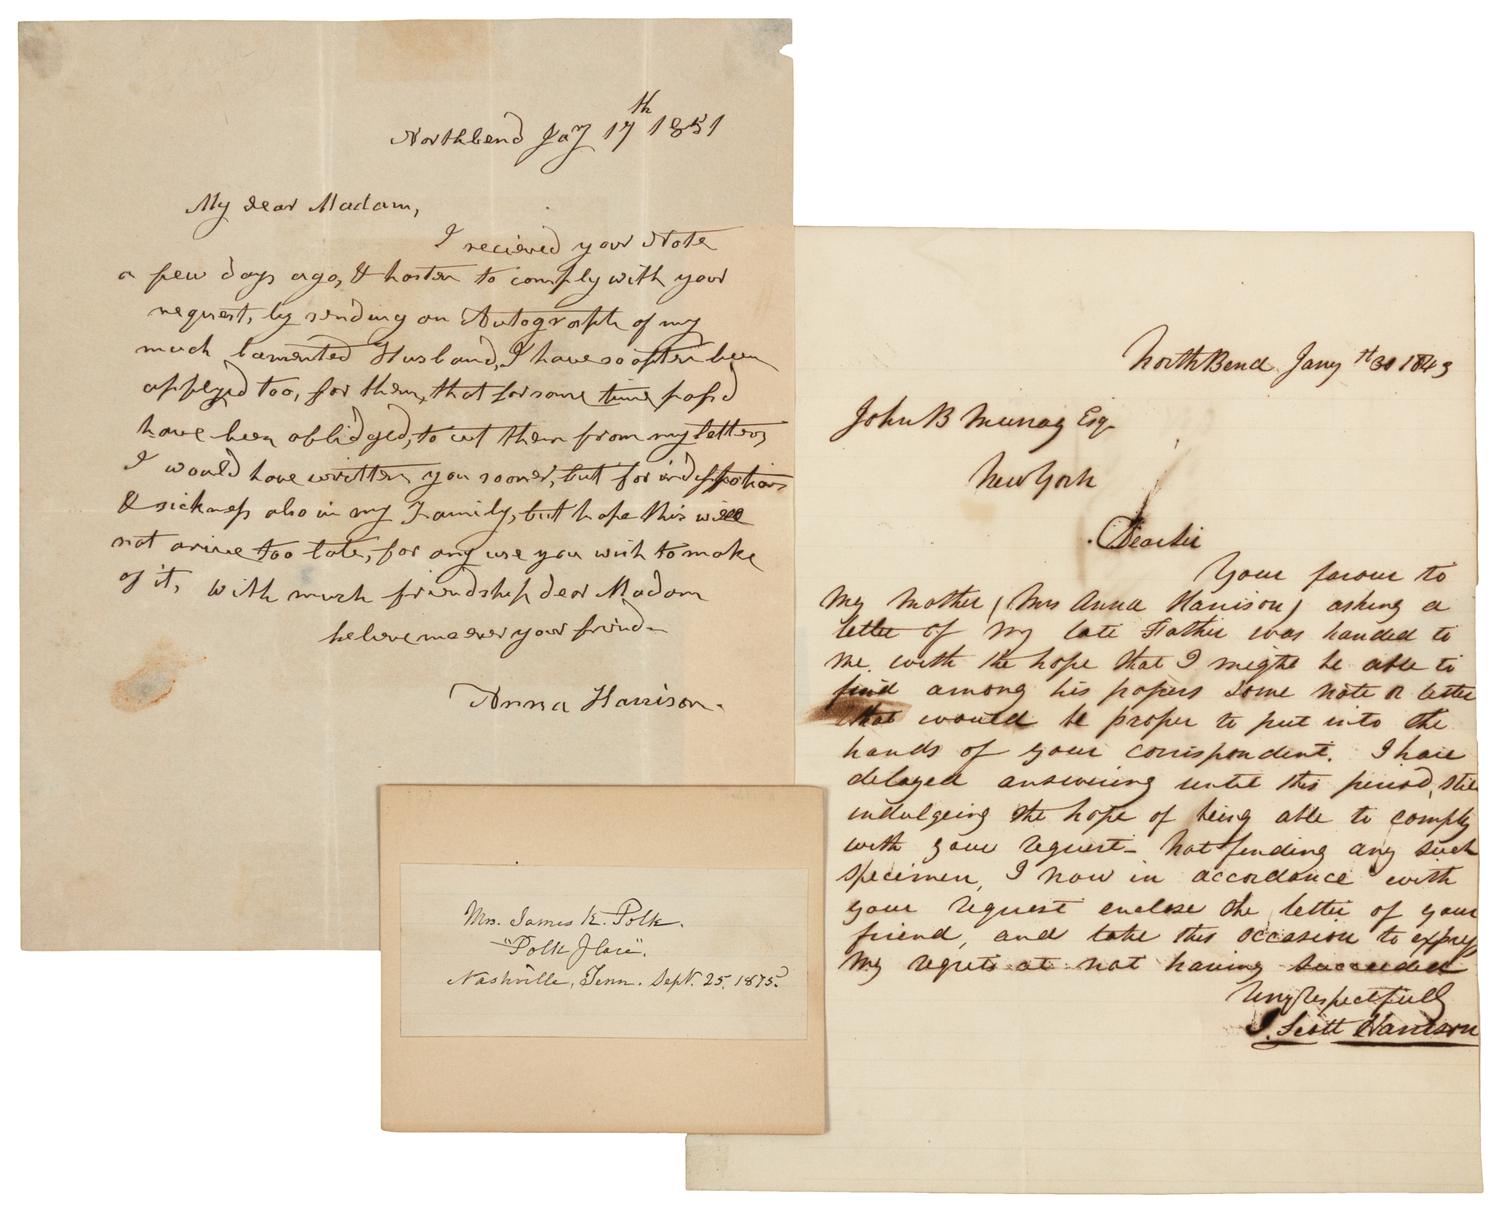 Northbend Jay 17th 1851
My dear Madam,
I recieved your Note
a few days ago, & hasten to comply with your
request, by sending an Autograph of my
much lamented Husband, I have so often been
applyed too, for them, that for some time passd
have been oblidged, to cut them from my letters
I would have written you sooner, but for indisposition
& sickness also in my Family, but hope this will
not arive too late, for any use you wish to make
of it, with much friendship dear Madam
believe me ever your friend-
Anna Harrison.
Mrs. James K. Polk.
"Polk Place".
Nashville, Tenn. Sept. 25, 1875.
North Bend Jany 1843
John B Murray Esq.
New York
Dear Sir
Your favour to
My mother (Mrs Anna Harrison) asking a
letter of my late Father was handed to
me, with the hope that I might be able to
find among his papers some note or letter
that would be proper to put into the
hands of your correspondent. I have
delayed answering until this period, still
indulgeing the hope of being able to comply
with your request- Not finding any such
specimen, I now in accordance with
your request enclose the letter of your
friend, and take this occasion to express
My regrets at not having succeeded
Very Respectfully
J. Scott Harrison